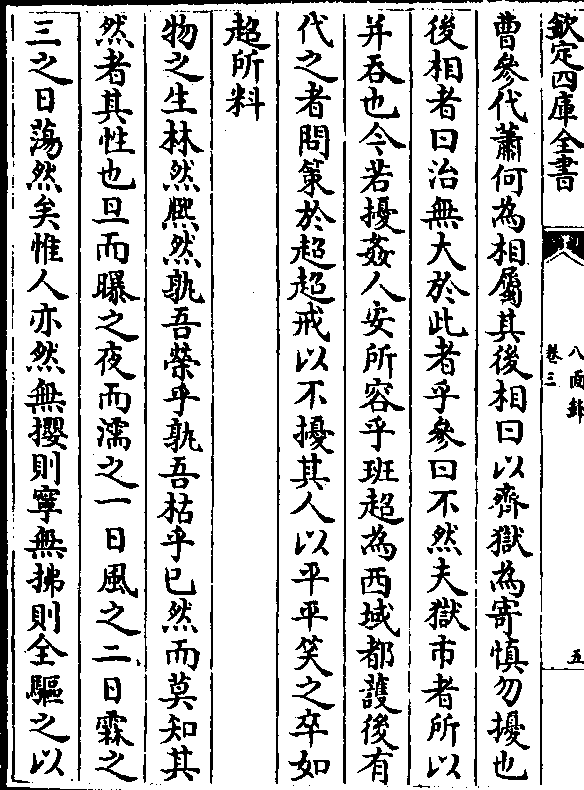 欽定四庫全書
八面鋒
卷三
五
曹參代蕭何為相屬其後相曰以齊獄為寄慎勿擾也
後相者曰治無大於此者乎參曰不然夫獄市者所以
并吞也今若擾姦人安所容乎班超為西域都護後有
代之者問策於超超戒以不擾其人以平平笑之卒如
超所料
物之生林然熈然孰吾榮乎孰吾枯乎已然而莫知其
然者其性也旦而曝之夜而濡之一日風之二日霖之
三之日蕩然矣惟人亦然無攖則寧無拂則全驅之以